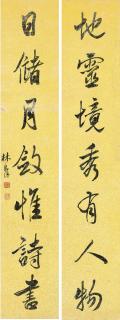 地靈境秀有人物
日儲月斂惟詩書